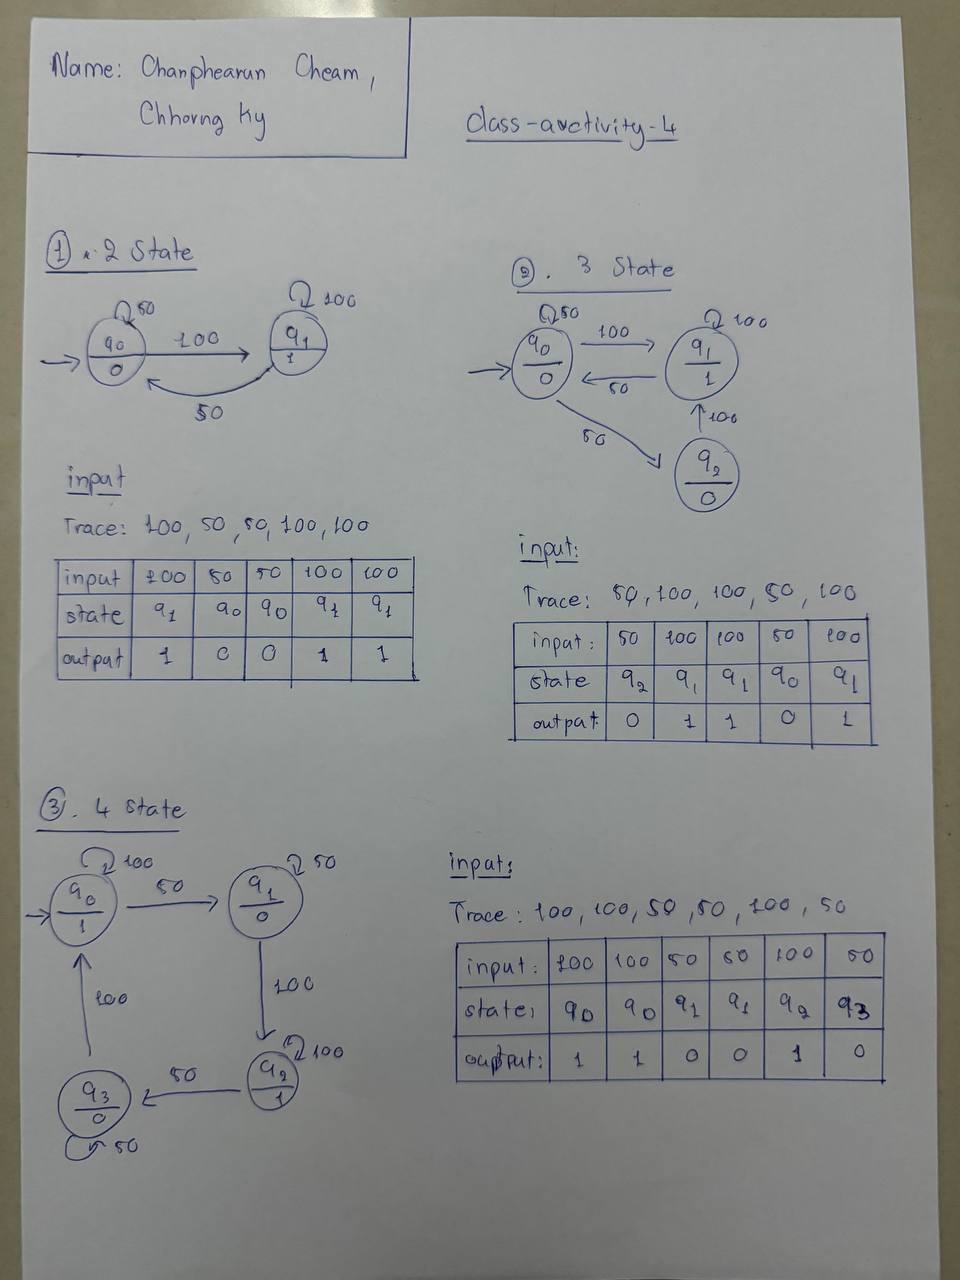 Name: Chanphearun Cheam,
Chhorng Ky
class-activity-4
1. 2 State
50
100
q0
0
100
q1
1
50
input
Trace: 100, 50, 50, 100, 100
input 100 50 50 100 100
state q1 q0 q0 q1 q1
output 1 0 0 1 1
2. 3 State
50
100
q0
0
100
q1
1
50
50
100
q2
0
input:
Trace: 50, 100, 100, 50, 100
input: 50 100 100 50 100
state q2 q1 q1 q0 q1
output: 0 1 1 0 1
3. 4 state
100
50
q0
1
50
q1
0
100
100
100
q3
0
50
q2
1
50
input:
Trace: 100, 100, 50, 50, 100, 50
input: 100 100 50 50 100 50
state: q0 q0 q1 q1 q2 q3
output: 1 1 0 0 1 0